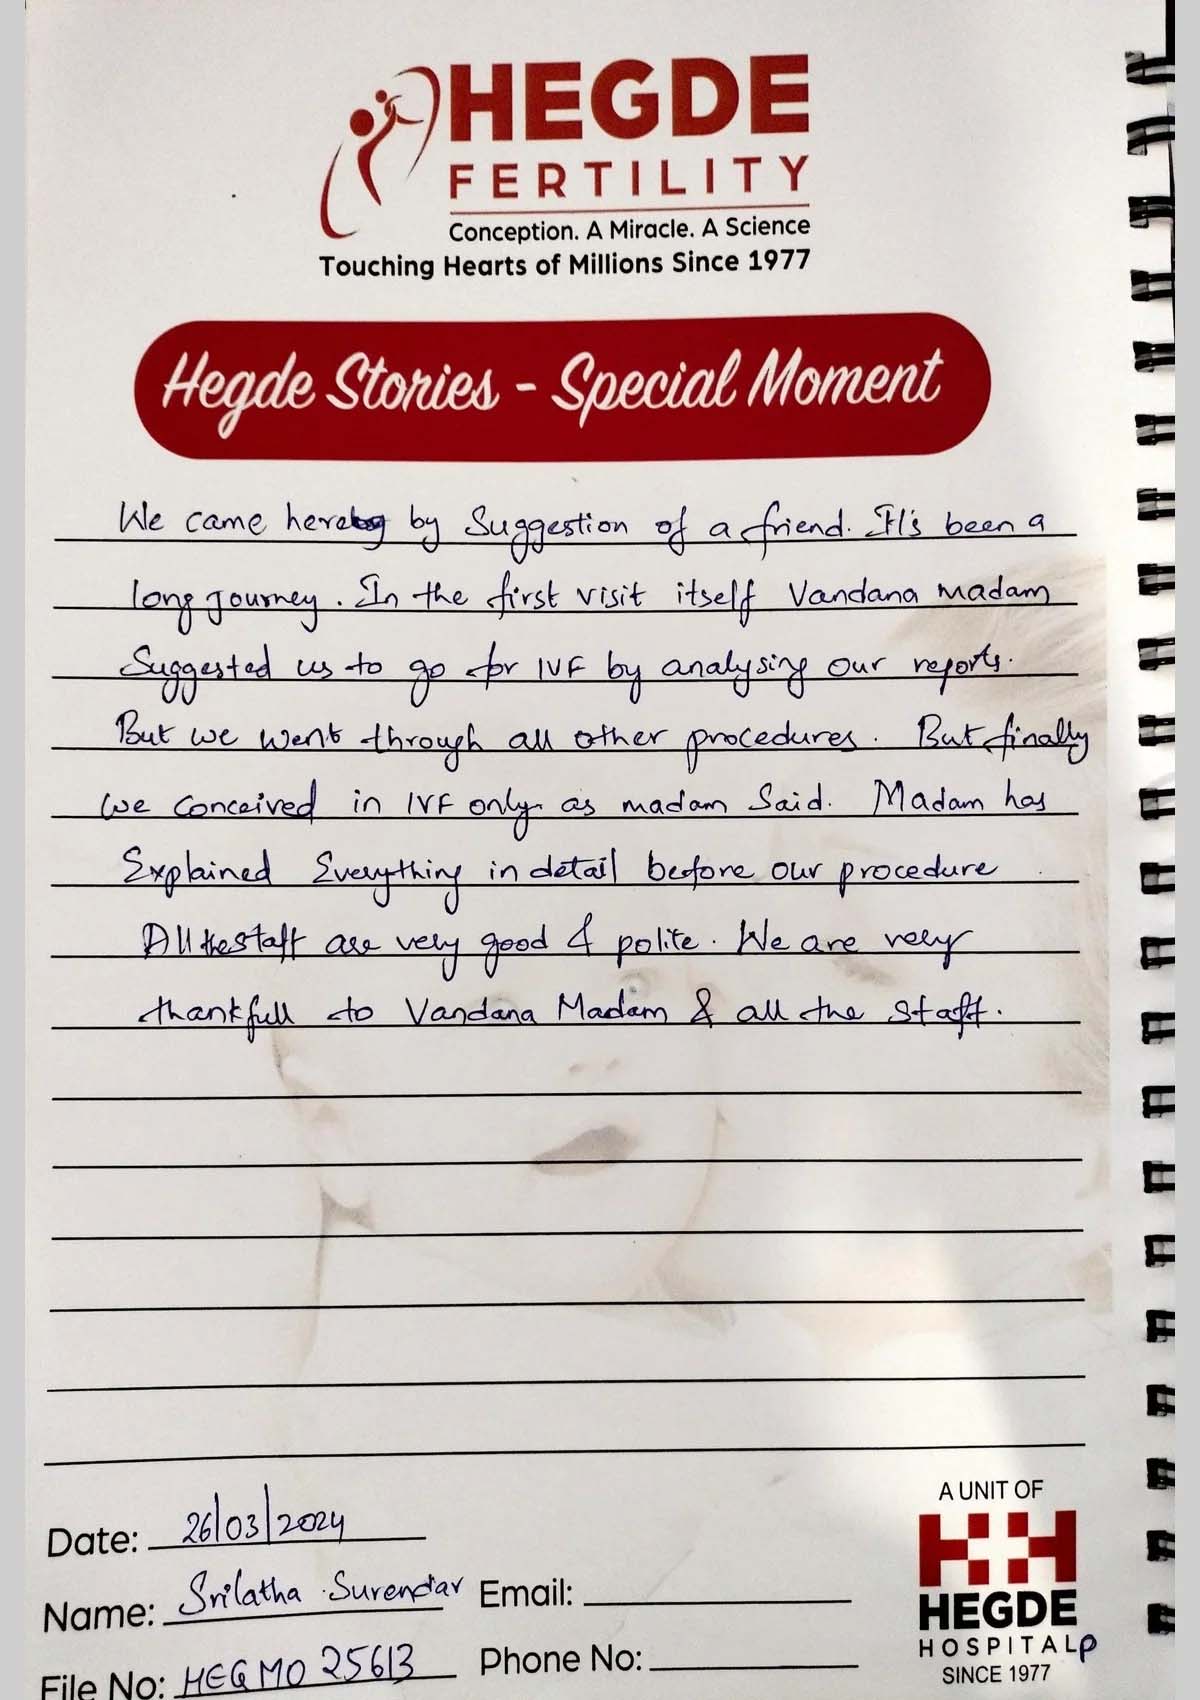 HEGDE
FERTILITY
Conception. A Miracle. A Science
Touching Hearts of Millions Since 1977
Hegde Stories - Special Moment
We came here by Suggestion of a friend. It's been a
long journey. In the first visit itself Vandana madam
Suggested us to go for IVF by analysing our reports.
But we went through all other procedures. But finally
we Conceived in IVF only as madam Said. Madam has
Explained Everything in detail before our procedure
All the staff are very good & polite. We are very
thankfull to Vandana Madam & all the staff.
Date: 26/03/2024
Name: Srilatha Surendar Email:
File No: HEGMO 25613 Phone No:
A UNIT OF
HH
HEGDE
HOSPITAL
SINCE 1977